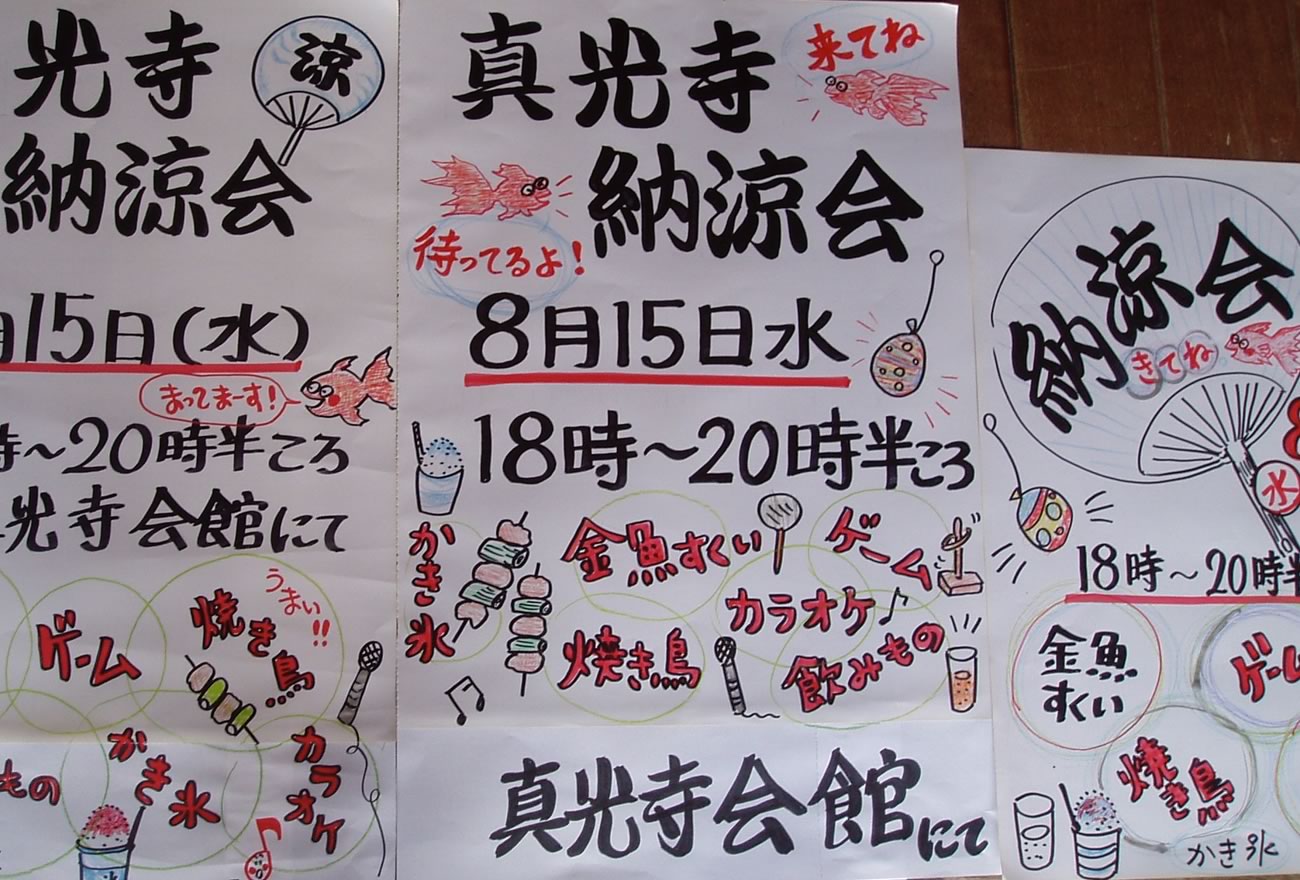 光寺
涼
納涼会
月15日(水)
まってまーす!
時～20時半ころ
光寺会館にて
ゲーム
焼き鳥
うまい!!
もの
かき氷
カラオケ
真光寺
来てね
納涼会
待ってるよ!
8月15日水
18時～20時半ころ
かき氷
金魚すくい
ゲーム
カラオケ
焼き鳥
飲みもの
真光寺会館にて
納涼会
きてね
8
水
18時～20時半
金魚すくい
ゲーム
焼き鳥
かき氷